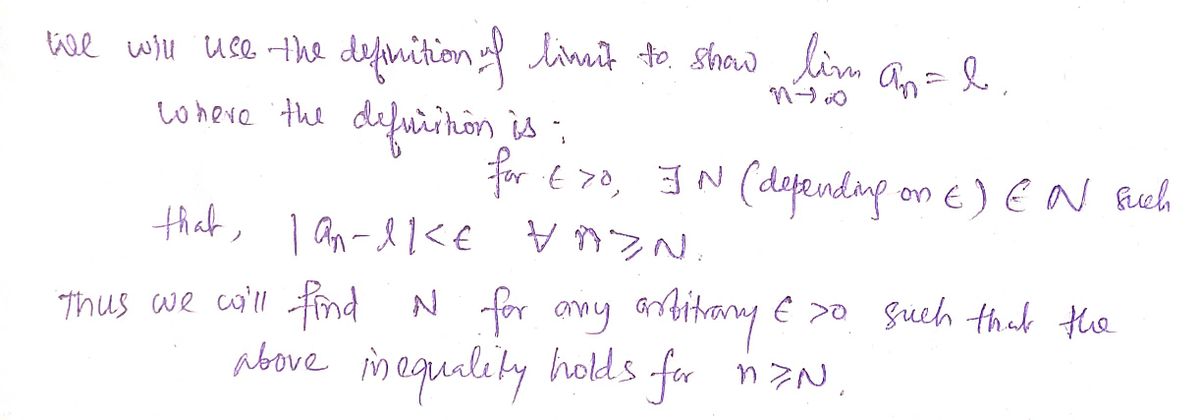 We will use the definition of limit to show lim n→∞ aₙ = l.
where the definition is ;
for ϵ >0, ∃ N (depending on ϵ) ∈ N such
that, | aₙ - l | < ϵ ∀ n ⩾ N.
Thus we will find N for any arbitrary ϵ >0 such that the
above inequality holds for n ⩾ N.